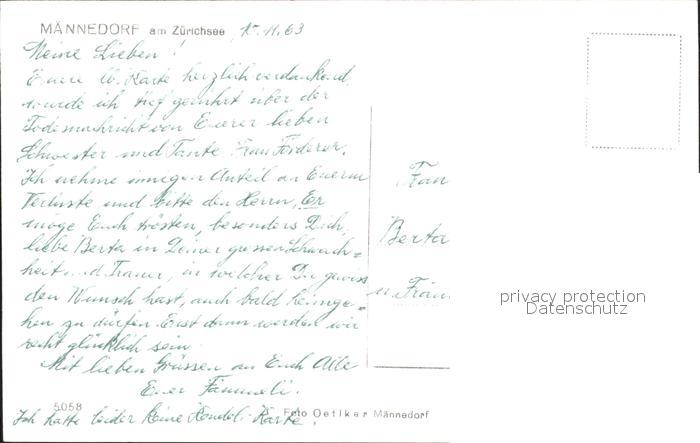 MÄNNEDORF am Zürichsee 15.11.63
Meine Lieben!
Eure lb. Karte herzlich verdankend,
wurde ich tief gerührt über der
Todesnachricht von Euerer lieben
Schwester und Tante Frau Förderer.
Ich nehme innigen Anteil an Euerm
Verluste und bitte den Herrn, Er
möge Euch trösten, besonders Dich,
liebe Berta in Deiner grossen Schwach=
heit und Trauer, in welcher Du gewiss
den Wunsch hast, auch bald heimge-
hen zu dürfen. Erst dann werden wir
recht glücklich sein.
Mit lieben Grüssen an Euch Alle
Euer
Ich hatte leider keine Kondol.-Karte.
5058
Foto Oetiker Männedorf
Frau
Berta
u. Fräu
privacy protection
Datenschutz